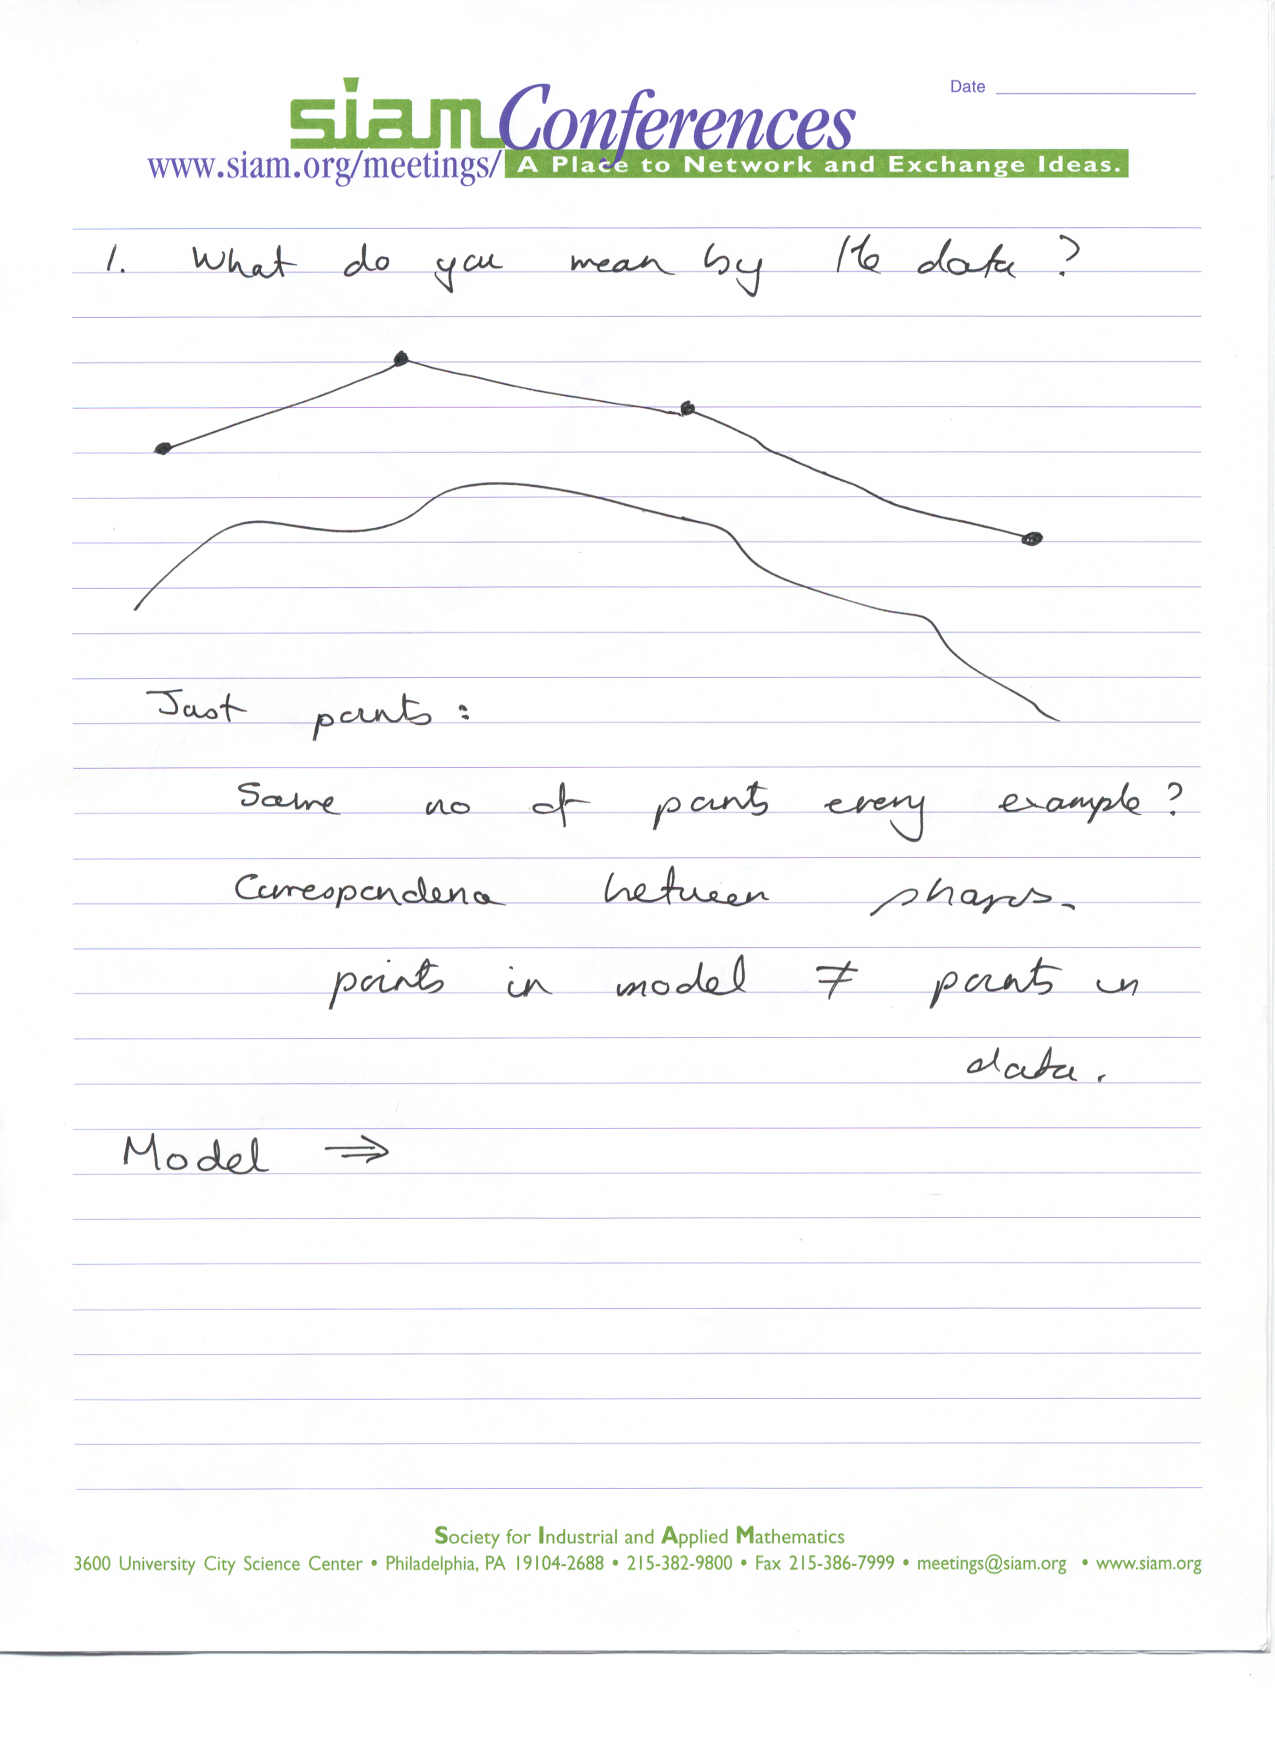 siam Conferences
Date
www.siam.org/meetings/ A Place to Network and Exchange Ideas.
1. What do you mean by the data?
Just points:
Same no of points every example?
Correspondence between shapes.
points in model ≠ points in
data.
Model ⇒
Society for Industrial and Applied Mathematics
3600 University City Science Center • Philadelphia, PA 19104-2688 • 215-382-9800 • Fax 215-386-7999 • meetings@siam.org • www.siam.org